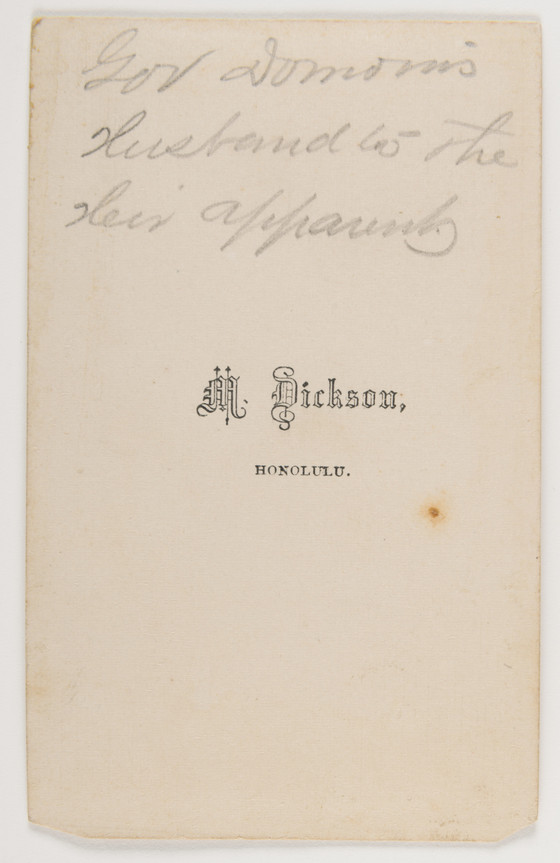 Gov Domonis
Husband to the
Heir apparent
M. Dickson,
HONOLULU.